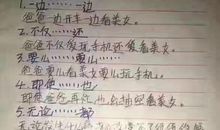 1.一边……一边
爸爸一边开车一边看美女。
2.不仅……还
爸爸不仅爱玩手机还爱看美女。
3.要么……要么……
爸爸要么看美女要么玩手机。
4.即使……也
即使爸爸再忙也会抽空看美女。
5.无论……都